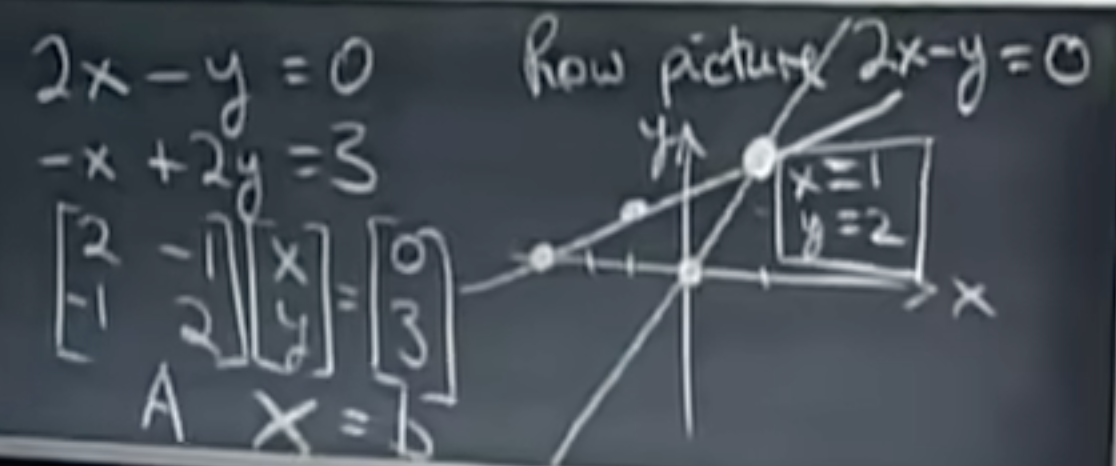 2x - y = 0
-x + 2y = 3
[2 -1] [x] = [0]
[-1 2] [y] [3]
A x = b
row picture 2x-y=0
y
x=1
y=2
x